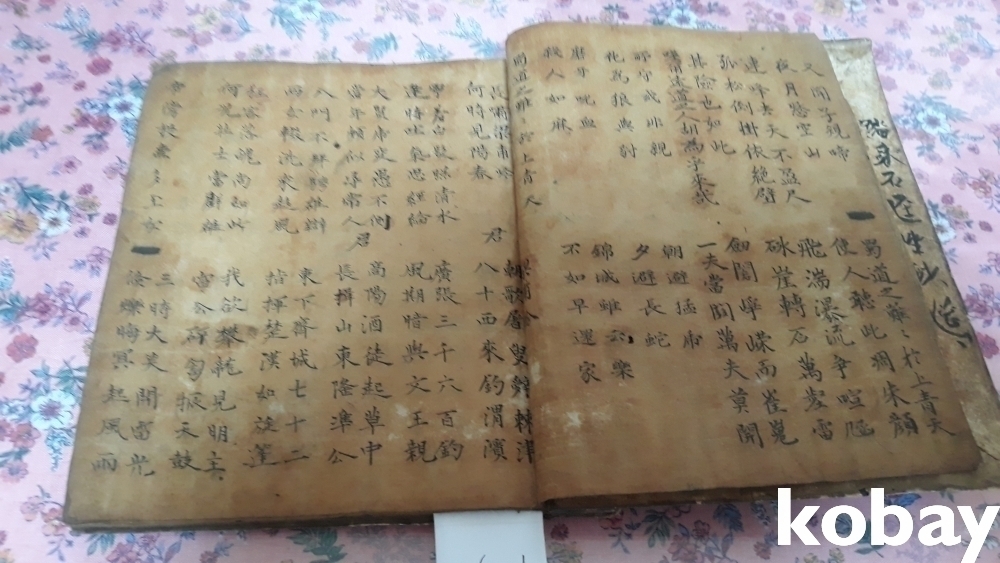 又聞子規啼
夜月愁空山
連峰去天不盈尺
孤松倒掛依絶壁
其險也如此
嗟爾遠道人胡爲乎來哉
所守或非親
化爲狼與豺
磨牙吮血
殺人如麻
蜀道之難〻於上青天
蜀道之難〻於上青天
使人聽此凋朱顔
飛湍瀑流爭喧豗
砯崖轉石萬壑雷
劍閣崢嶸而崔嵬
一夫當關萬夫莫開
朝避猛虎
夕避長蛇
錦城雖云樂
不如早還家
長嘯梁甫吟
何時見陽春 君
寧羞白髮照清水
逢時吐氣思經綸
大賢虎變愚不測
當年頗似尋常人 君
入門不拜騁雄辯
兩女輟洗來趨風
狂客落魄尚如此
何況壯士當群雄
帝旁投壺多玉女
朝歌屠叟辭棘津
八十西來釣渭濱
廣張三千六百釣
風期暗與文王親
高陽酒徒起草中
長揖山東隆準公
東下齊城七十二
指揮楚漢如旋蓬
我欲攀龍見明主
雷公砰訇振天鼓
三時大笑開電光
倏爍晦冥起風雨
kobay